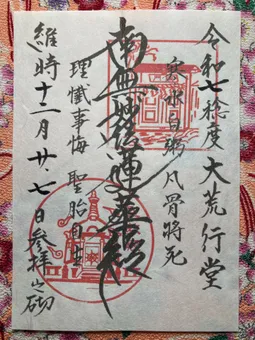 令和七稔度大荒行堂
寒水白粥凡骨將死
南無妙法蓮華経
理懺事悔聖胎自生
維時十二月廿七日參拝之砌